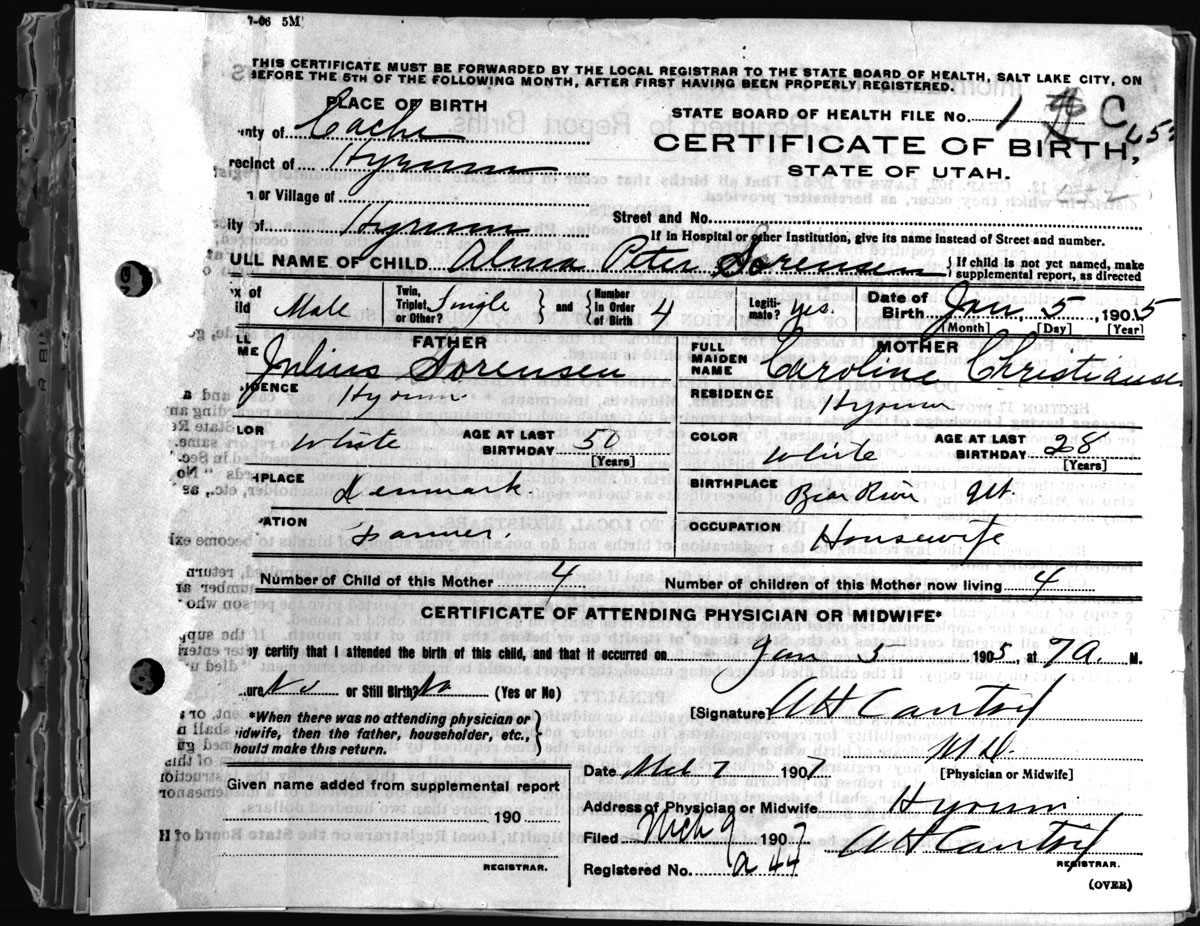 7-06 5M
THIS CERTIFICATE MUST BE FORWARDED BY THE LOCAL REGISTRAR TO THE STATE BOARD OF HEALTH, SALT LAKE CITY, ON
BEFORE THE 5TH OF THE FOLLOWING MONTH, AFTER FIRST HAVING BEEN PROPERLY REGISTERED.
PLACE OF BIRTH
unty of Cache
STATE BOARD OF HEALTH FILE No. 1 C
CERTIFICATE OF BIRTH,
STATE OF UTAH.
recinct of Hyrum
or Village of
ity of Hyrum
Street and No.
If in Hospital or other Institution, give its name instead of Street and number.
ULL NAME OF CHILD Alma Peter Sorensen } If child is not yet named, make supplemental report, as directed
x of ild Male
Twin, Triplet, or Other? Single } and { Number in Order of Birth 4
Legitimate? yes.
Date of Birth Jan. 5, 1905
[Month] [Day] [Year]
FATHER
LL ME Julius Sorensen
IDENCE Hyrum
LOR White
AGE AT LAST BIRTHDAY 50
[Years]
HPLACE Denmark.
ATION Farmer.
MOTHER
FULL MAIDEN NAME Caroline Christiansen
RESIDENCE Hyrum
COLOR White
AGE AT LAST BIRTHDAY 28
[Years]
BIRTHPLACE Bear River Ut.
OCCUPATION Housewife
Number of Child of this Mother 4
Number of children of this Mother now living 4
CERTIFICATE OF ATTENDING PHYSICIAN OR MIDWIFE*
by certify that I attended the birth of this child, and that it occurred on Jan 5 1905, at 7 A. M.
ure No or Still Birth? No (Yes or No)
*When there was no attending physician or
idwife, then the father, householder, etc.,
hould make this return.
[Signature]
M.D.
[Physician or Midwife]
Date Mch 7 1907
Given name added from supplemental report
190
REGISTRAR.
Address of Physician or Midwife Hyrum
Filed Mch 9 1907
REGISTRAR.
Registered No. a 47
(OVER)